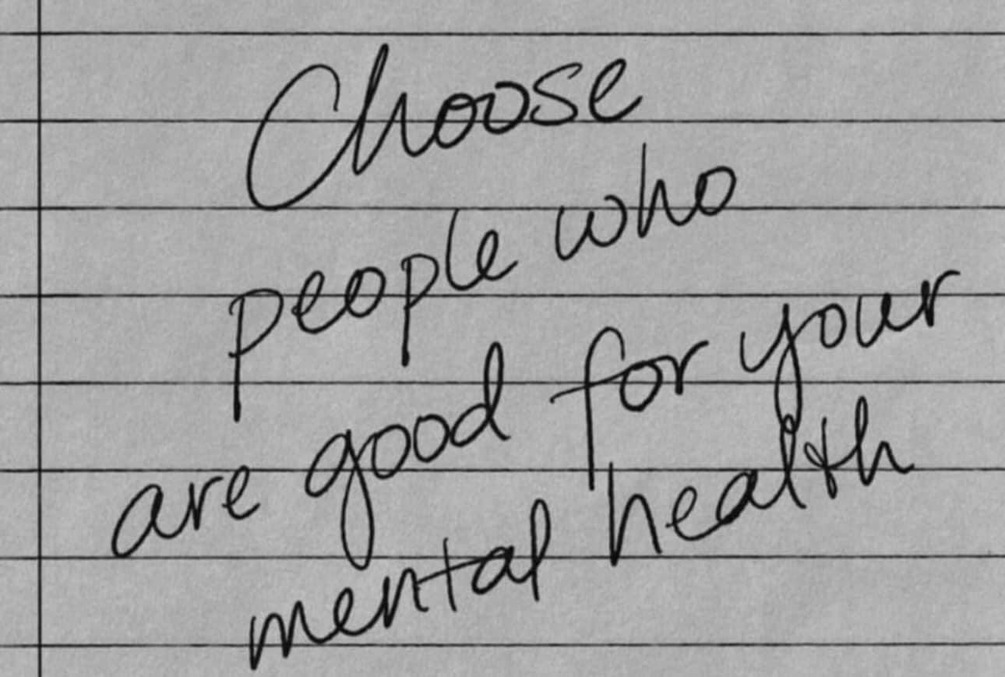 Choose
people who
are good for your
mental health